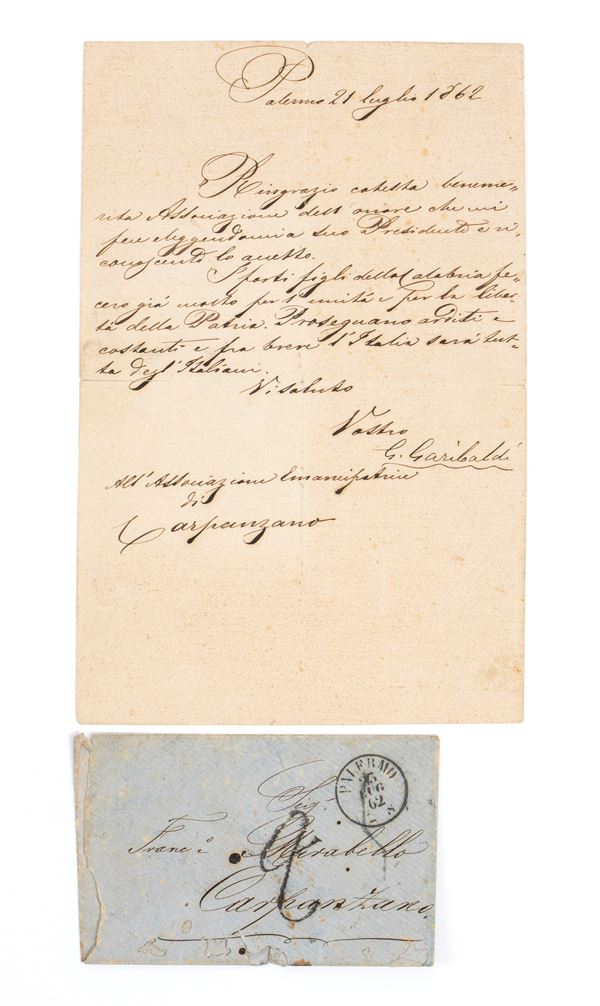 Palermo 21 luglio 1862
Ringrazio cotesta beneme-
rita Associazione dell'onore che mi
fece eleggendomi a suo Presidente e ri-
conoscente lo accetto.
I forti figli della Calabria fe-
cero già molto per l'unità e per la liber-
tà della Patria. Proseguano arditi e
costanti e fra breve l'Italia sarà tut-
ta degl'Italiani.
Vi saluto
Vostro
G. Garibaldi
All'Associazione Emancipatrice
di
Carpanzano
PALERMO
25
LUG
62
8
Sig.
Franc.o Mirabello
2
Carpanzano